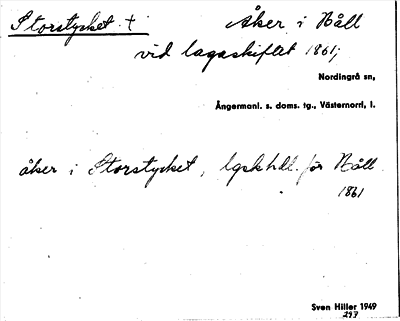 Storstycket † Åker i Håll
vid lagaskiftet 1861;
Nordingrå sn,
Ångermanl. s. doms. tg., Västernorrl, l.
åker i Storstycket, lgskhdl. för Håll
1861
Sven Hiller 1949
297